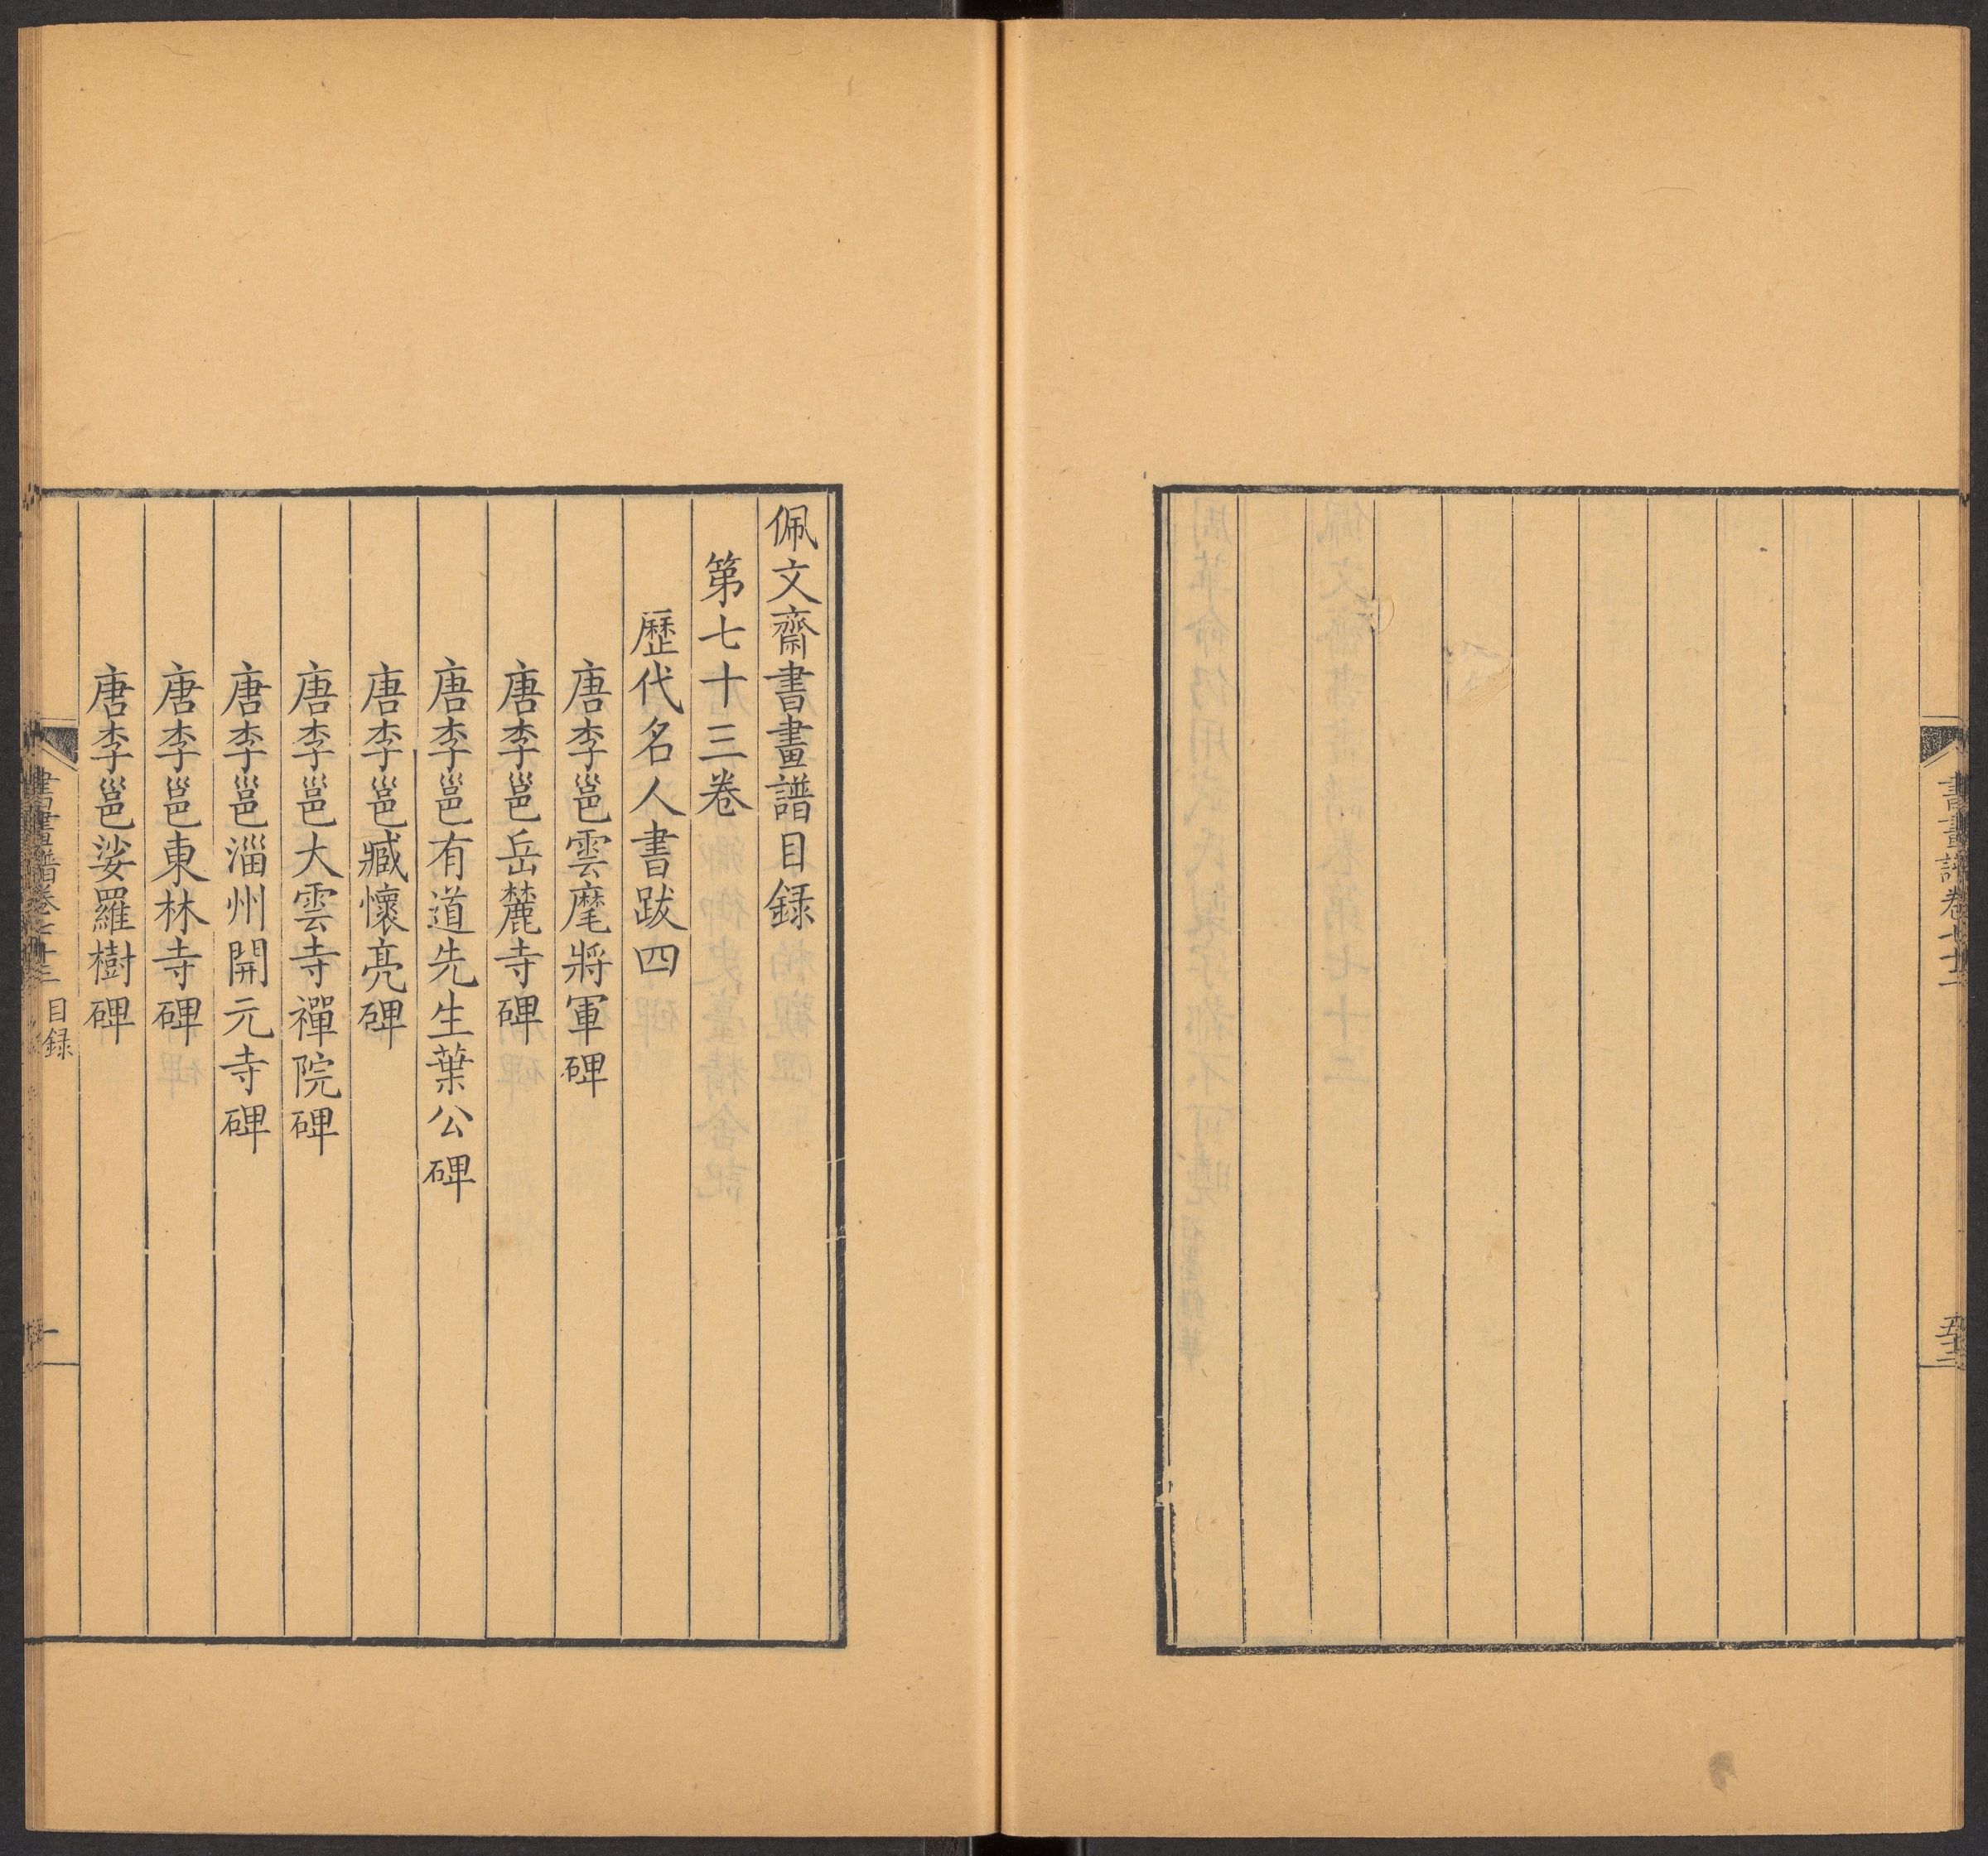 書畫譜卷七十二
五十三
佩文齋書畫譜目録
第七十三卷
歷代名人書跋四
唐李邕雲麾將軍碑
唐李邕岳麓寺碑
唐李邕有道先生葉公碑
唐李邕臧懷亮碑
唐李邕大雲寺禪院碑
唐李邕淄州開元寺碑
唐李邕東林寺碑
唐李邕娑羅樹碑
書畫譜卷七十三 目録
一